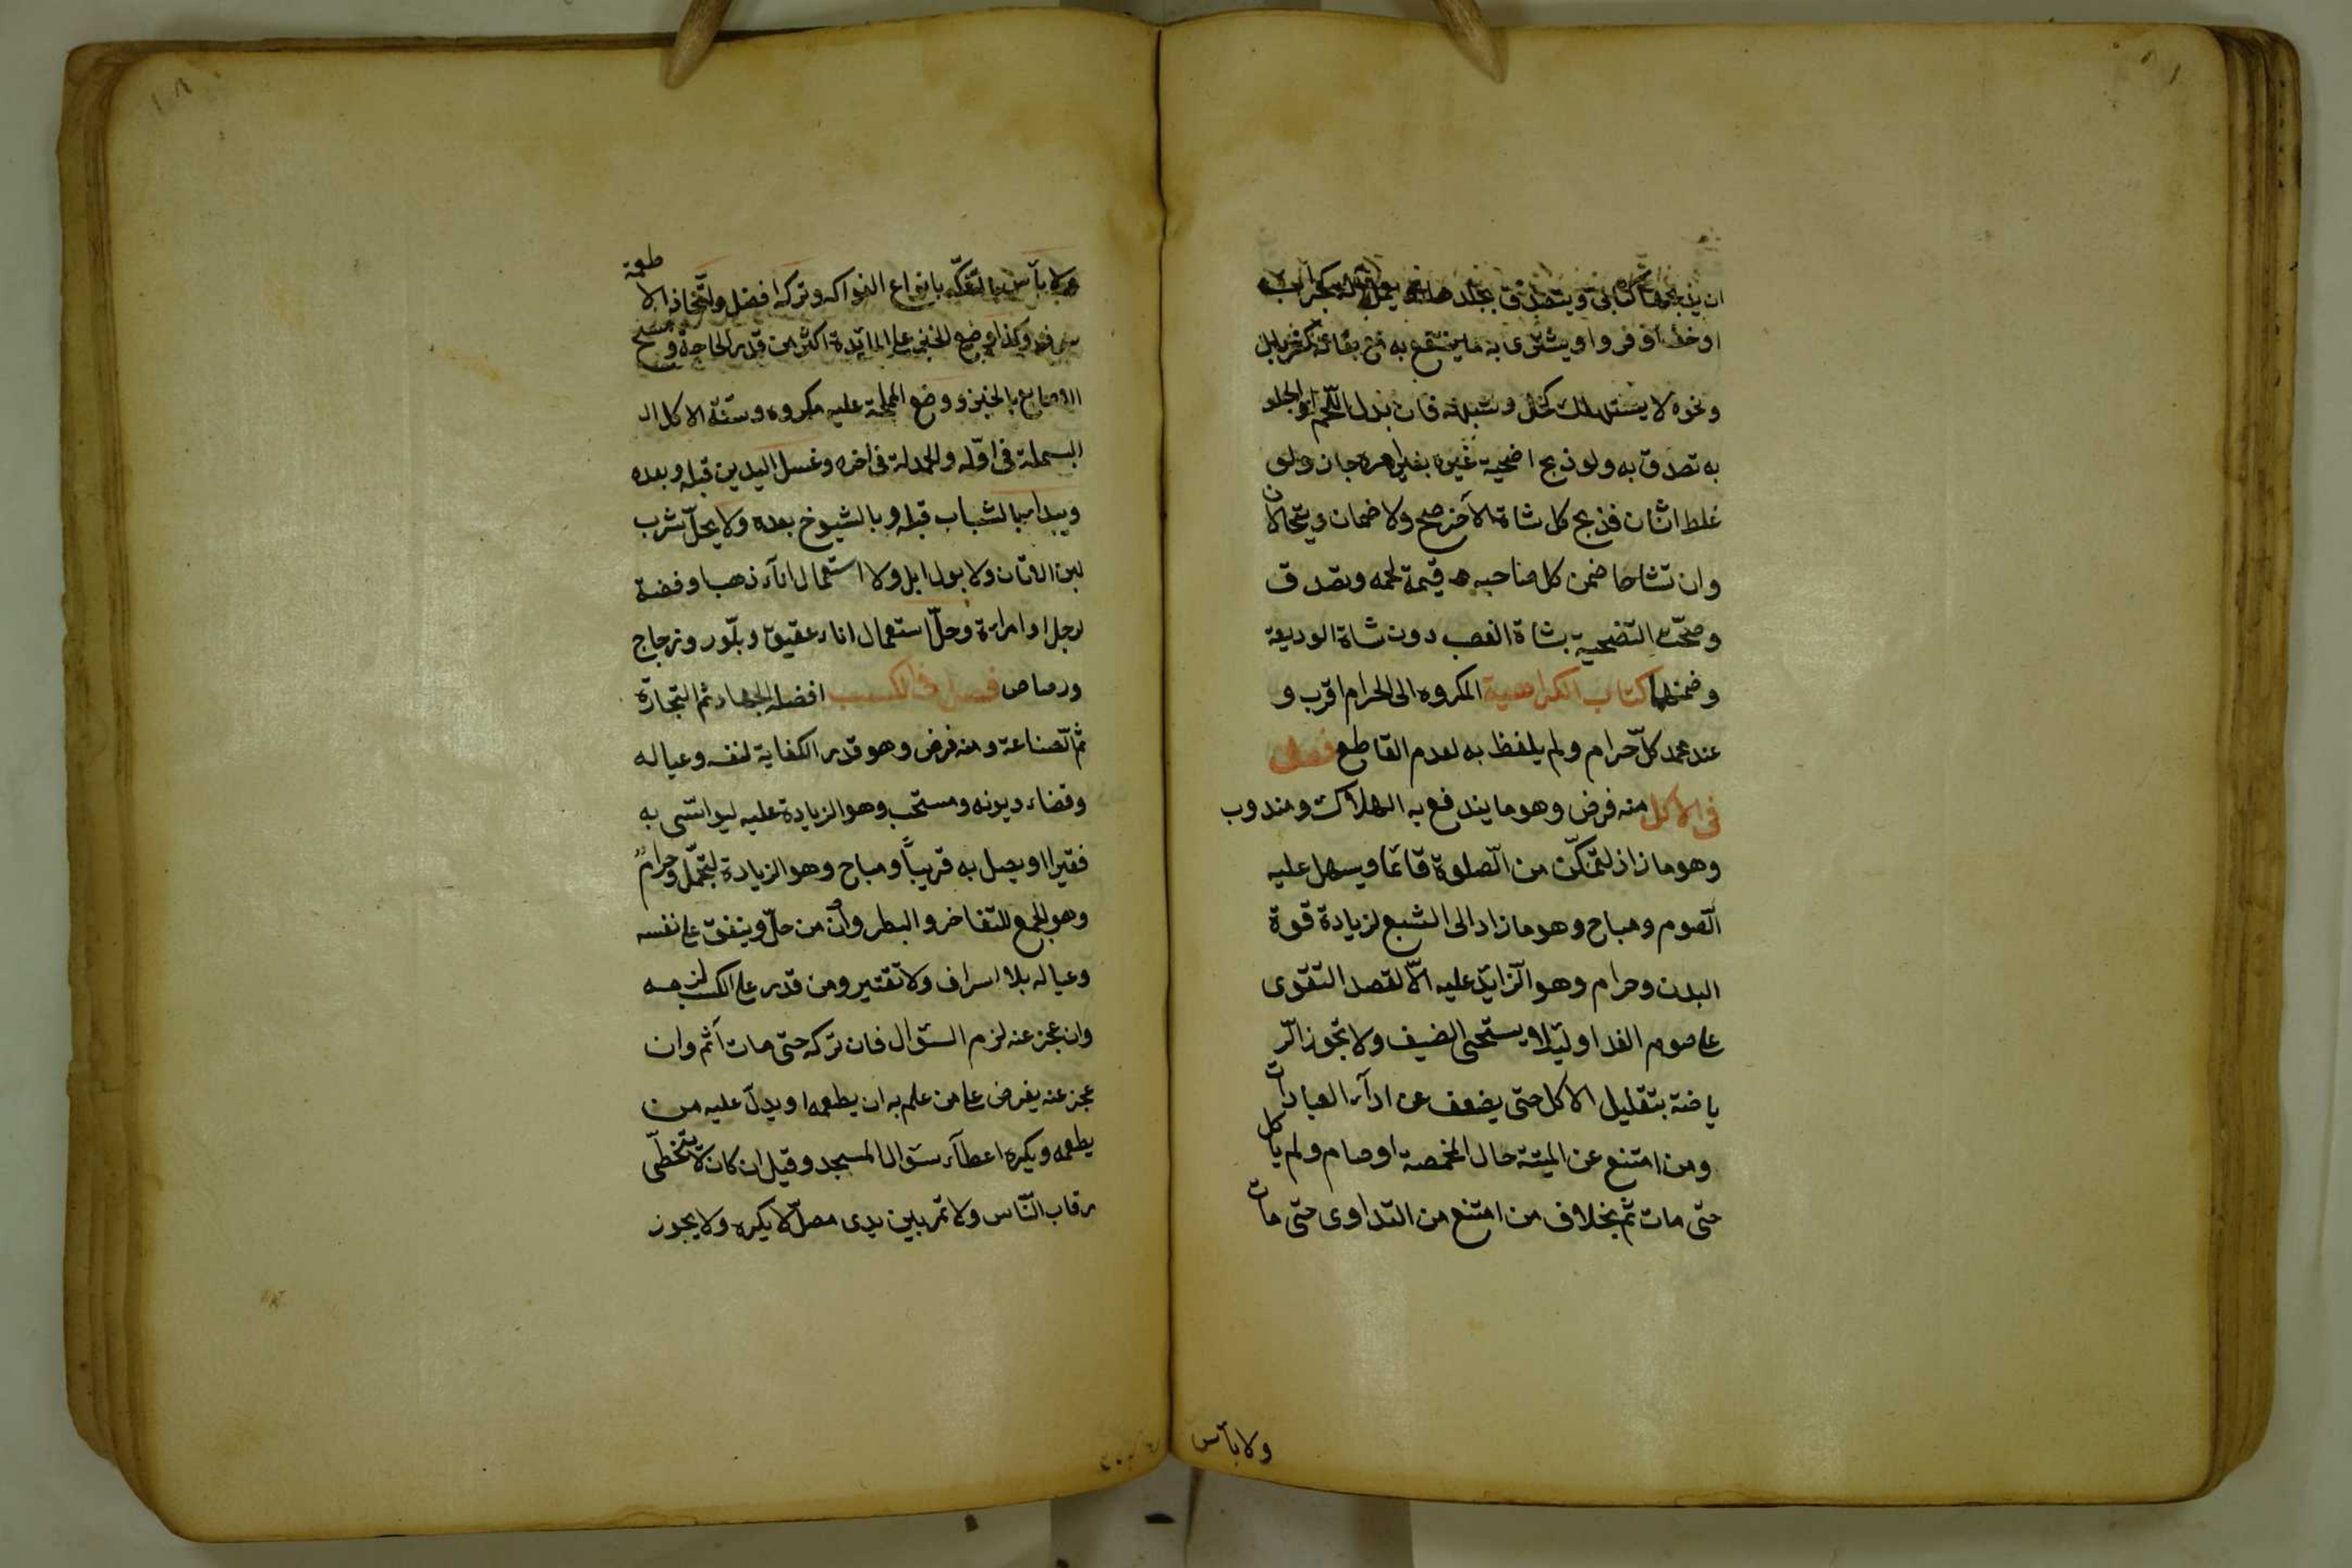 ان يذبحها كتابى ويتصدق بجلدها او يعمله آلة كجراب
او خف او فرو او يشترى به ما ينتفع به مع بقائه كغربال
ونحوه لا يستهلك كخل وشبهه فان بدل اللحم او الجلد
به تصدق به ولو ذبح اضحية غيره بغير امره جاز ولو
غلط اثنان فذبح كل شاة الآخر صح ولا ضمان ويتحالان
وان تشاحا ضمن كل صاحبه قيمة لحمه وتصدق
وصحّت التضحية بشاة الغصب دون شاة الوديعة
وضمنها كتاب الكراهية المكروه الى الحرام اقرب و
عند محمد كلّ حرام ولم يلفظ به لعدم القاطع فصل
فى الاكل منه فرض وهو ما يندفع به الهلاك ومندوب
وهو ما زاد ليتمكّن من الصّلوة قائما ويسهل عليه
الصّوم ومباح وهو ما زاد الى الشبع لزيادة قوة
البدن وحرام وهو الزّايد عليه الّا لقصد التقوى
على صوم الغد او ليلا ويستحى الضيف ولا تجوز الرّ
ياضة بتقليل الاكل حتى يضعف عن ادآء العبادات
ومن امتنع عن الميتة حال المخمصة او صام ولم ياكل
حتى مات اثم بخلاف من امتنع من التداوى حتى مات
ولا بأس
ولا بأس بالتفكّه بانواع الفواكه وتركه افضل واتّخاذ الاطعمة
سرف وكذا وضع الخبز على المائدة اكثر من قدر الحاجة ومسح
الاصابع بالخبز ووضع المملحة عليه مكروه وسنّة الاكل ال
البسملة فى اوّله والحمدلة فى اخره وغسل اليدين قبله وبعده
ويبدا بالشباب قبله وبالشيوخ بعده ولا يحلّ شرب
لبن الاتان ولا بول ابل ولا استعمال انآء ذهب او فضة
لرجل او امراءة وحلّ استعمال اناء عقيق وبلّور وزجاج
ورصاص فصل فى الكسب افضله الجهاد ثم التجارة
ثم الصّناعة ومنه فرض وهو قدر الكفاية لنفسه وعياله
وقضاء ديونه ومستحب وهو الزيادة عليه ليواسّى به
فقيرا او يصل به قريباً ومباح وهو الزيادة لتجمّل وحرام
وهو الجمع للتفاخر والبطر وان من حلّ وينفق على نفسه
وعياله بلا اسراف ولا تقتير ومن قدر على الكسب لزمه
وان عجز عنه لزم السؤال فان تركه حتى مات آثم وان
عجز عنه يفرض على من علم به ان يطعمه او يدلّ عليه من
يطعمه ويكره اعطآء سؤال المسجد وقيل ان كان لا يتخطّى
رقاب النّاس ولا تمر بين يدى مصلّ لا يكره ولا يجوز